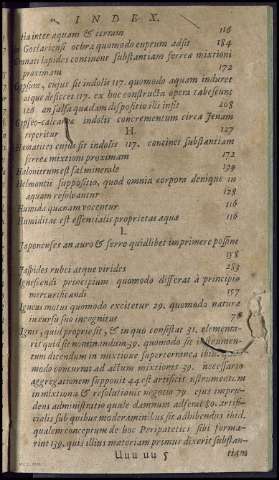 INDEX.
inter aquam & terram 116
Goslariensi ochra quomodo cuprum adsit 184
Granati lapides continent substantiam ferrea mixtioni
proximam 172
Gypsum, ejus sit indolis 117. quomodo aquam induret
atque desiccet 117. ex hoc constructa opera
128 an salsa quadam dispositio illi insit 208
Gypseo-calcariæ indolis concrementum circa Jenam
reperitur 127
H.
Hæmatites cujus sit indolis 117. continet substantiam
ferrea mixtioni proximam 172
Halonitrum est sal minerale 199
Helmontii suppositio, quod omnia corpora denique in
aquam resolvantur 128
Humida quænam vocentur 116
Humiditas est essentialis proprietas aquæ 116
I.
Japonenses an auro & ferro quidlibet imprimere possint
198
Jaspides rubei atque virides 288
Ignescendi principium quomodo differat à principio
mercurificandi 157
Igneus motus quomodo excitetur 29. quomodo natura
incursu suo cognitus 78
Ignis, quid proprie sit, & in quo consistat 31. elementa-
ris quid sit 39. quomodo sit instrumen-
tum dicendum in mixtione supercorranea ibid. quo-
modo concurrat ad actum mixtionis 39. necessario
aggregationem supponit 44 est artificii instrumentum
in mixtione & resolutionis negotio 79. ejus impru-
dens administratio quale damnum adferat 80. artifi-
cialis sub quibus moderaminibus sit adhibendus ibid.
qualem conceptum de hoc Peripatetici sibi forma-
rint 139. qui illius materiam primus dixerit substan-
Uuu uu 5 tiam